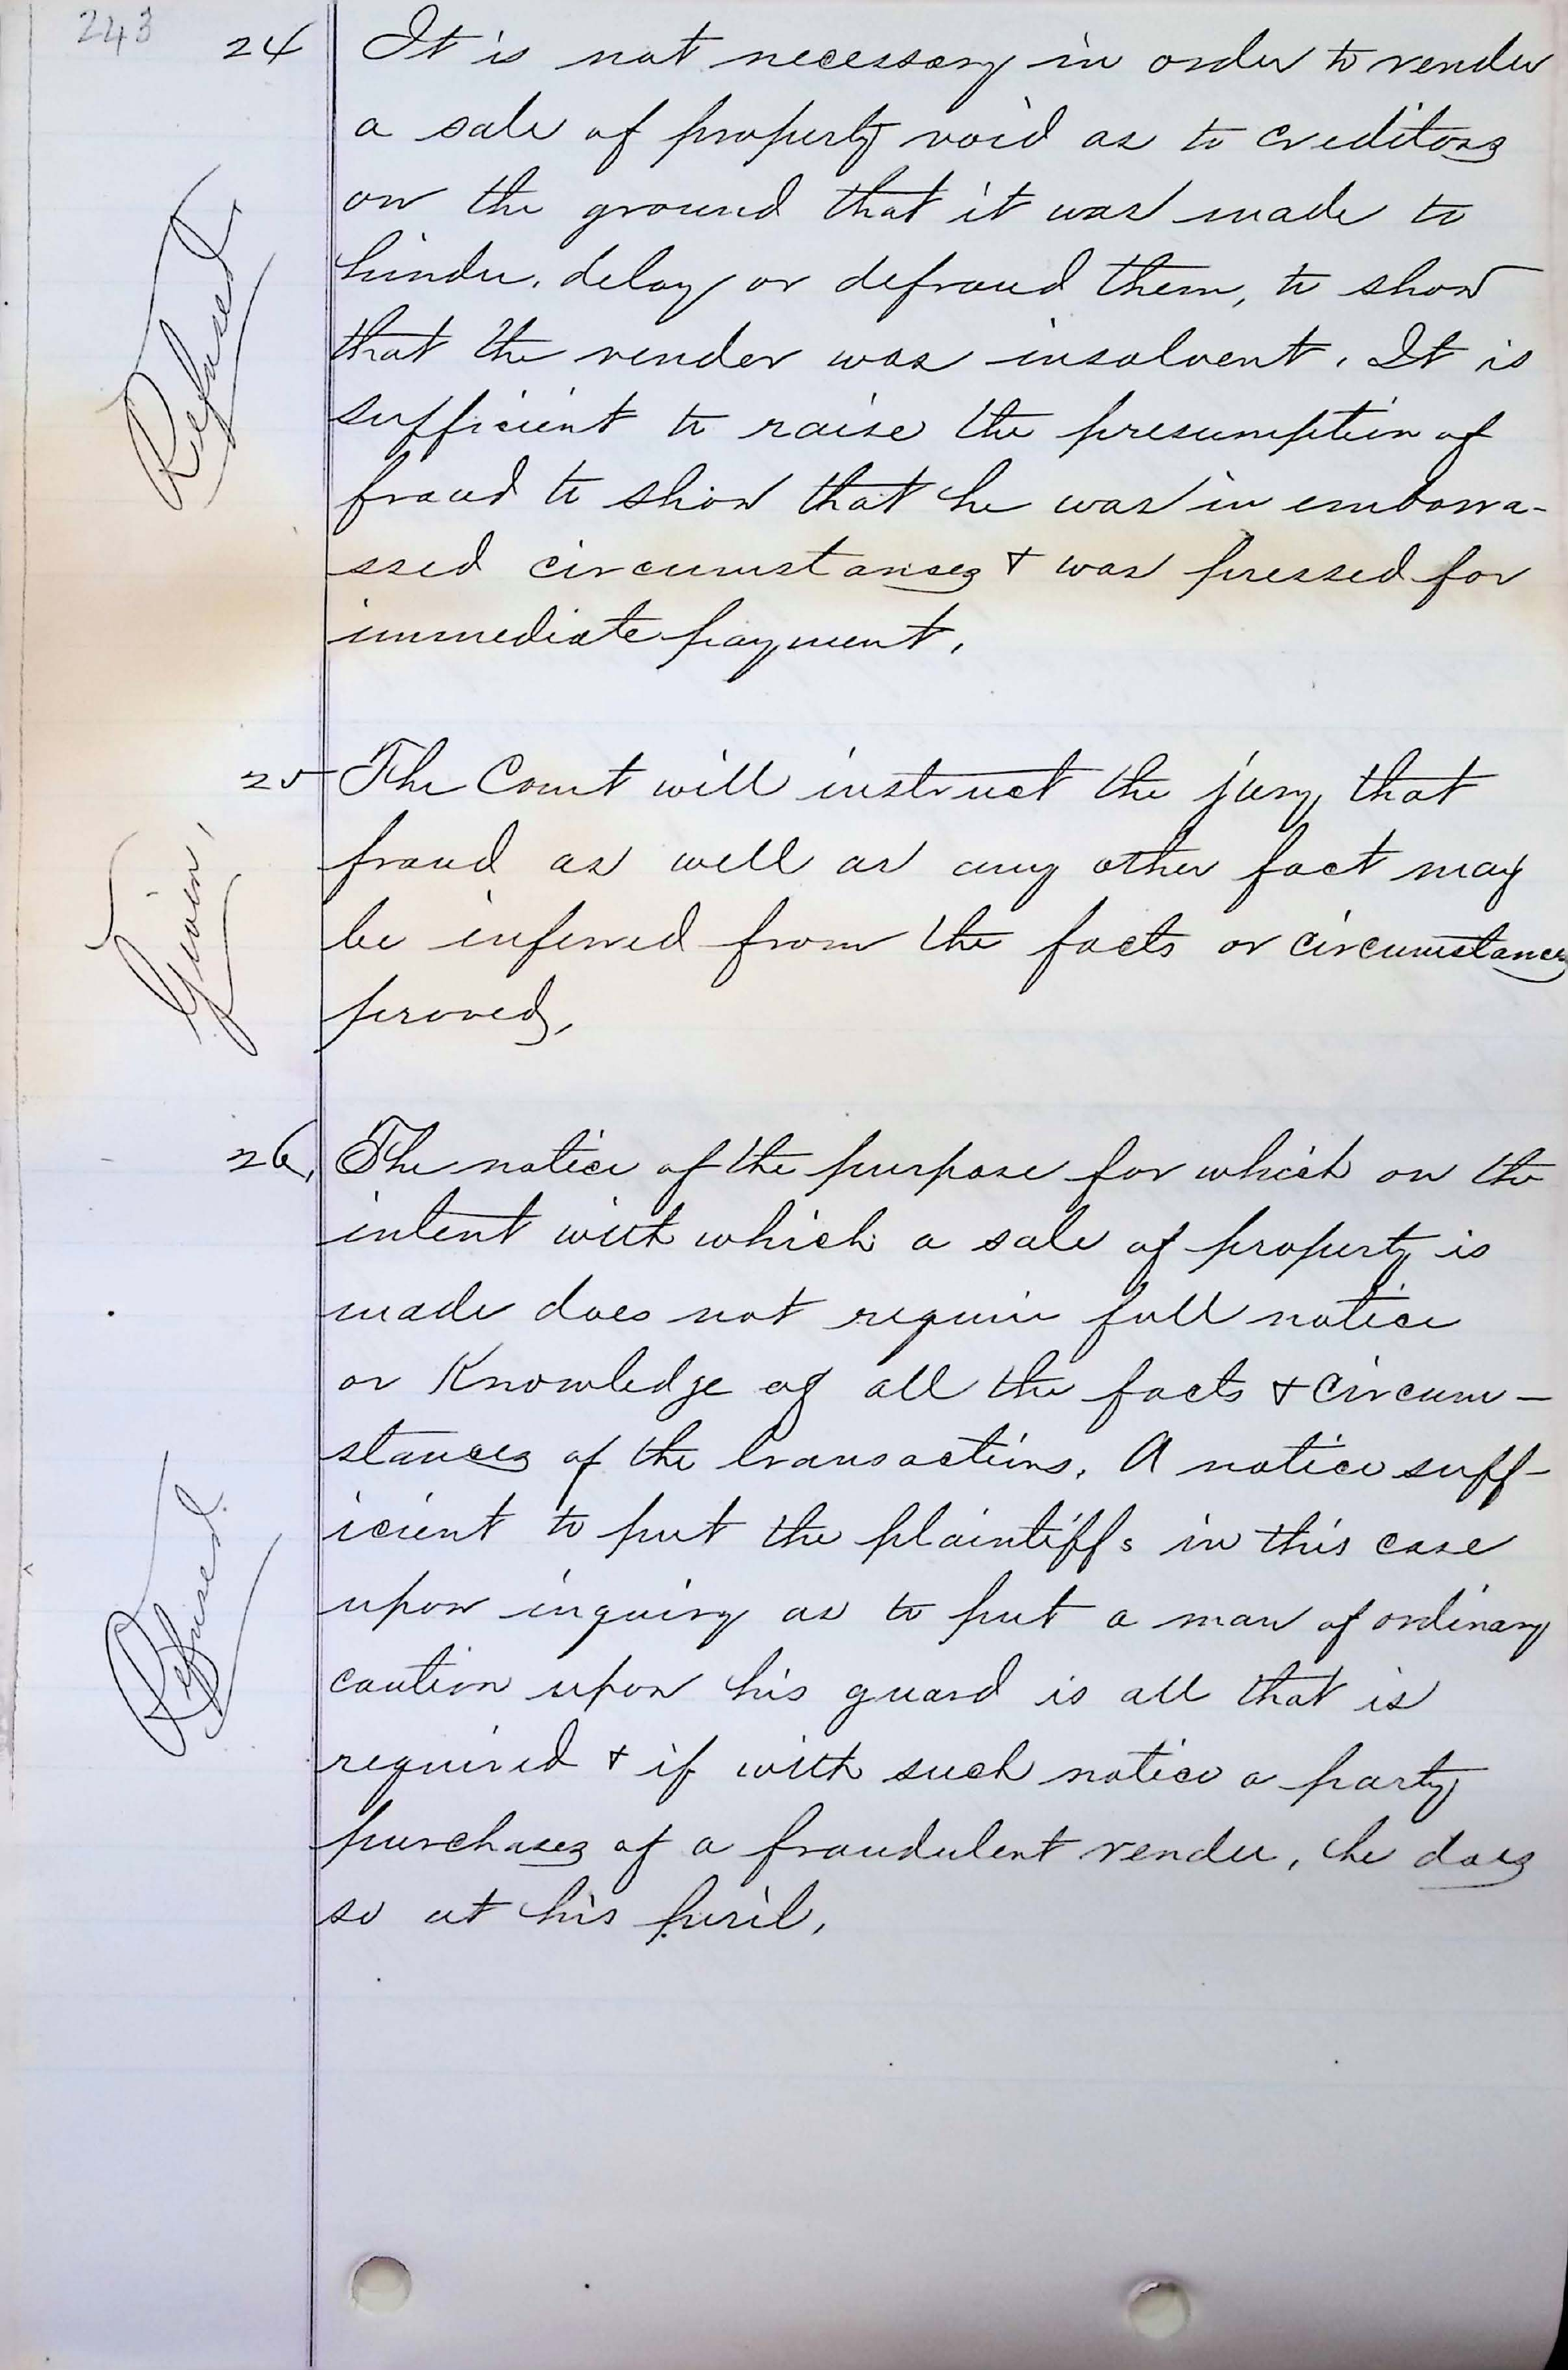 243
24 It is not necessary in order to render
a sale of property void as to creditors
on the ground that it was made to
hinder, delay or defraud them, to show
that the vender was insolvent. It is
sufficient to raise the presumption of
fraud to show that he was in embarra-
ssed circumstances & was pressed for
immediate payment.
Refused.
25 The Court will instruct the jury that
fraud as well as any other fact may
be inferred from the facts or circumstances
proved,
Given,
26, The notice of the purpose for which or the
intent with which a sale of property is
made does not require full notice
or Knowledge of all the facts & circum-
stances of the transactions. A notice suff-
icient to put the plaintiffs in this case
upon inquiry as to put a man of ordinary
caution upon his guard is all that is
required & if with such notice a party
purchases of a fraudulent vender, he does
so at his peril,
Refused.